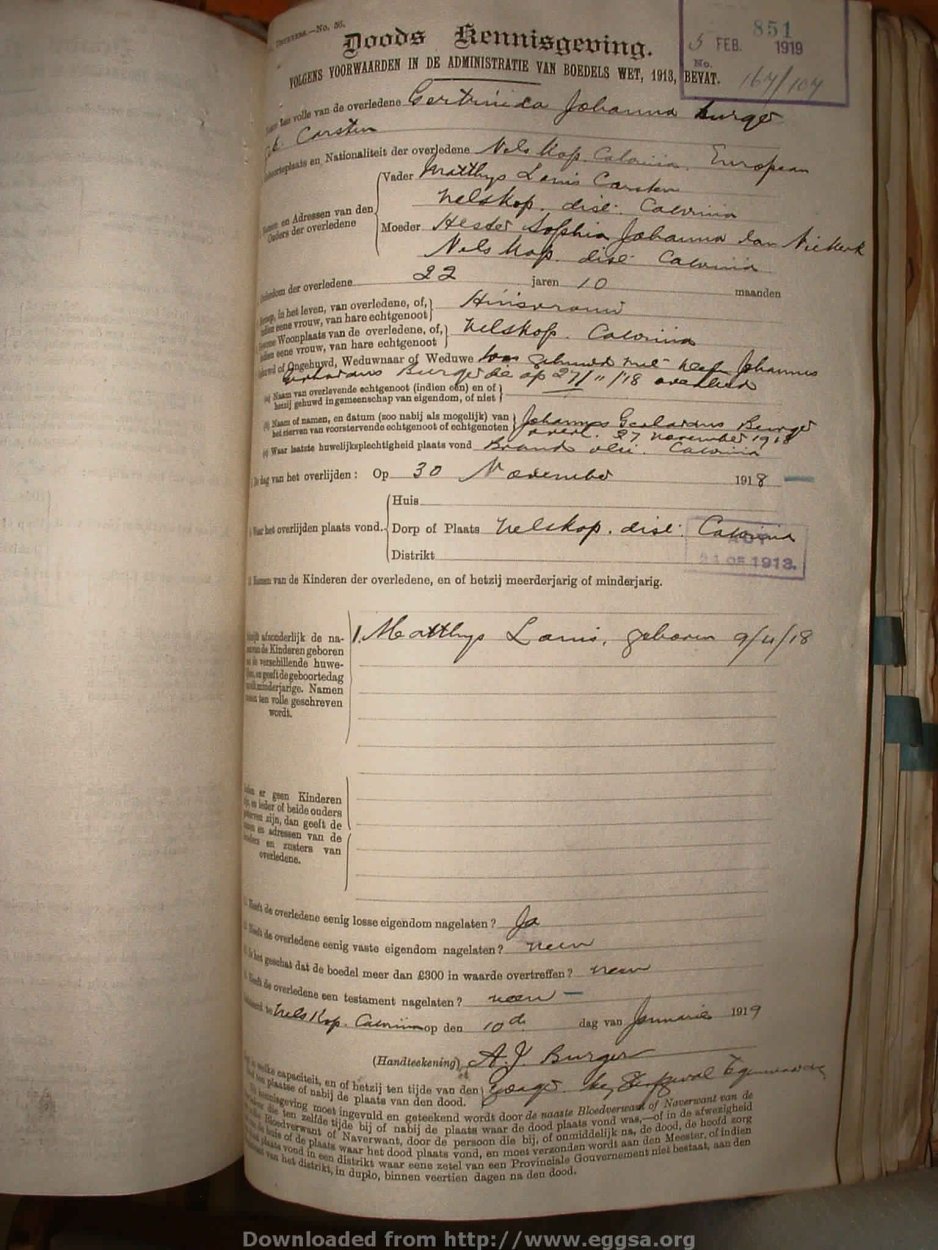 No. 56.
Doods Kennisgeving.
VOLGENS VOORWAARDEN IN DE ADMINISTRATIE VAN BOEDELS WET, 1913, BEVAT.
851
5 FEB. 1919
No.
167/104
ten volle van de overledene Gertruida Johanna Burger
Carsten
en Nationaliteit der overledene Nels Kop Calvinia. European
Vader Matthys Louis Carsten
Nelskop. dist: Calvinia
en Adressen van den
Ouders der overledene
Moeder Hester Sophia Johanna van Niekerk
Nels Kop dist: Calvinia
der overledene 22 jaren 10 maanden
in het leven, van overledene, of,
eene vrouw, van hare echtgenoot Huisvrouw
Woonplaats van de overledene, of,
eene vrouw, van hare echtgenoot Nelskop. Calvinia
of Ongehuwd, Weduwnaar of Weduwe was gehuwd met Johannes
Gerhardus Burger die op 27/11/18 overleed
(a) Naam van overlevende echtgenoot (indien een) en of
hetzij gehuwd in gemeenschap van eigendom, of niet
(b) Naam of namen, en datum (zoo nabij als mogelijk) van
het sterven van voorstervende echtgenoot of echtgenoten Johannes Gerhardus Burger
overl. 27 November 1918
(c) Waar laatste huwelijksplechtigheid plaats vond Calvinia
De dag van het overlijden: Op 30 November 1918
Huis
Waar het overlijden plaats vond. Dorp of Plaats Nelskop. dist: Calvinia
Distrikt
ACT
24 OF 1913.
Namen van de Kinderen der overledene, en of hetzij meerderjarig of minderjarig.
afzonderlijk de na-
van de Kinderen geboren
de verschillende huwe-
en geeft de geboortedag
minderjarige. Namen
ten volle geschreven
wordt.
1. Matthys Louis, geboren 9/11/18
er geen Kinderen
en ieder of beide ouders
zijn, dan geeft de
en adressen van de
en zusters van
overledene.
Heeft de overledene eenig losse eigendom nagelaten? Ja
Heeft de overledene eenig vaste eigendom nagelaten? neen
het geschat dat de boedel meer dan £300 in waarde overtreffen? neen
Heeft de overledene een testament nagelaten? neen
te Nels Kop. Calvinia op den 10de dag van Januarie 1919
(Handteekening) A. J. Burger
welke capaciteit, en of hetzij ten tijde van den
ten plaatse of nabij de plaats van den dood.
kennisgeving moet ingevuld en geteekend wordt door de naaste Bloedverwant of Naverwant van de
die ten zelfde tijde bij of nabij de plaats waar de dood plaats vond was,—of in de afwezigheid
Bloedverwant of Naverwant, door de persoon die bij, of onmiddelijk na, de dood, de hoofd zorg
de huis of de plaats waar het dood plaats vond, en moet verzonden wordt aan den Meester, of indien
plaats vond in een distrikt waar eene zetel van een Provinciale Gouvernement niet bestaat, aan den
van het distrikt, in duplo, binnen veertien dagen na den dood.
Downloaded from http://www.eggsa.org